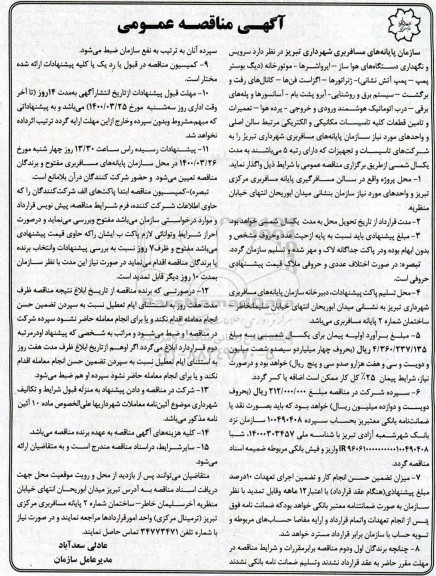 آگهی مناقصه عمومی
سازمان پایانه‌های مسافربری شهرداری تبریز در نظر دارد سرویس
و نگهداری دستگاه‌های هوا ساز – ایرواشرها – موتورخانه (دیگ بوستر
پمپ – پمپ آتش نشانی) – ژنراتورها – اگزاست فن‌ها – کانال‌های رفت و
برگشت – سیستم برق و روشنایی – آبرو پشت بام – آسانسورها و پله‌های
برقی – درب اتوماتیک هوشمند ورودی و خروجی – پرده هوا – تعمیرات
و تامین قطعات کلیه تاسیسات مکانیکی و الکتریکی مرتبط سالن اصلی
و واحدهای مورد نیاز سازمان پایانه‌های مسافربری شهرداری تبریز را به
شرکت‌های تاسیسات و تجهیزات که دارای رتبه ۵ می‌باشند به مدت
یکسال شمسی از طریق برگزاری مناقصه عمومی با شرایط ذیل واگذار نماید.
۱- محل پروژه واقع در سالن مسافرگیری پایانه مسافربری مرکزی
تبریز و واحدهای مورد نیاز سازمان بنشانی میدان ابوریحان انتهای خیابان
منظریه.
۲- مدت قرارداد از تاریخ تحویل محل به مدت یکسال شمسی خواهد بود.
۳- مبلغ پیشنهادی باید نسبت به پایه از حیث عدد و حروف مشخص و
بدون ابهام بوده و در پاکت جداگانه لاک و مهر شده و تسلیم سازمان گردد.
تبصره: در صورت اختلاف عددی و حروفی ملاک قیمت پیشنهادی
حروفی است.
۴- محل تسلیم پاکت پیشنهادات، دبیرخانه سازمان پایانه‌های مسافربری
شهرداری تبریز به نشانی میدان ابوریحان انتهای خیابان
ساختمان شماره ۲ پایانه مسافربری می‌باشد.
۵- مبلغ برآورد اولیه پیمان برای یکسال شمسی به مبلغ
۴/۳۶۰/۲۳۷/۱۳۵ ریال (بحروف چهار میلیارد و سیصد و شصت میلیون
و دویست و سی و هفت هزار و صد و سی و پنج ریال) خواهد بود و در صورت
نیاز، شرایط پیمان ۲۵٪ کل کار ممکن است اضافه یا کسر گردد.
۶- سپرده شرکت در مناقصه مبلغ ۲۱۲/۰۰۰/۰۰۰ ریال (بحروف
دویست و دوازده میلیون ریال) خواهد بود که باید بصورت نقد یا
ضمانتنامه بانکی معتبر یا بحساب سپرده ۱۰۰۴۹۰۴۰۸ سازمان نزد
بانک شهر شعبه آزادی تبریز با شناسه ملی
واریز و فیش بانکی مربوطه ضمیمه اسناد
مناقصه گردد.
۷- میزان تضمین حسن انجام کار و تضمین اجرای تعهدات ۱۰ درصد
مبلغ پیشنهادی (هنگام عقد قرارداد) با اعتبار ۱۲ ماهه وقابل تمدید با نظر
سازمان به صورت ضمانتنامه معتبر بانکی خواهد بود که ضمانت نامه فوق
پس از انجام تعهدات و اتمام قرارداد و ارایه مفاصا حساب‌های مربوطه و
تسویه حساب با سازمان برابر قرارداد مسترد خواهد شد.
۸- چنانچه برندگان اول و دوم مناقصه برابر مقررات و شرایط مناقصه در
مهلت مقرر حاضر به عقد قرارداد نشدند و تسلیم ضمانت نامه بانکی نشدند
سپرده آنان به ترتیب به نفع سازمان ضبط می‌شود.
۹- کمیسیون مناقصه در قبول یا رد یک یا کلیه پیشنهادات ارائه شده
مختار است.
۱۰- مهلت قبول پیشنهادات از تاریخ انتشار آگهی به مدت ۱۴ روز (تا آخر
وقت اداری روز سه‌شنبه مورخ ۱۴۰۰/۰۳/۲۵) می‌باشد و به پیشنهاداتی
که مبهم، مشروط و بدون سپرده و خارج از این مهلت ارایه گردد ترتیب اثر داده
نخواهد شد.
۱۱- پیشنهادات رسیده راس ساعت ۱۳/۳۰ روز چهار شنبه مورخ
۱۴۰۰/۰۳/۲۶ در محل سازمان پایانه‌های مسافربری مفتوح و برندگان
مناقصه تعیین می‌شود و حضور شرکت کنندگان در آن بلامانع است.
تبصره) – کمیسیون مناقصه ابتدا پاکت‌های الف شرکت‌کنندگان را که
حاوی اطلاعات شرکت کننده، فرم شرایط مناقصه، پیش نویس قرارداد
و موارد درخواستی سازمان می‌باشد مفتوح و بررسی می‌نماید و در صورت
احراز شرایط و توانائی لازم پاکت ب ایشان را که حاوی قیمت پیشنهادی
می‌باشد مفتوح و ظرف ۷ روز نسبت به بررسی پیشنهادات و انتخاب برنده
یا برندگان مناقصه اقدام می‌نماید در صورت نیاز این مدت با نظر سازمان
بمدت ۱۰ روز دیگر قابل تمدید است.
۱۲- در صورتی که برنده مناقصه از تاریخ ابلاغ نتیجه مناقصه ظرف
مدت هفت روز به استثنای ایام تعطیل نسبت به سپردن تضمین حسن
انجام معامله اقدام نکند و یا برای انجام معامله حاضر نشود سپرده شرکت
در مناقصه او ضبط می‌شود و مراتب به شخصی که پیشنهاد او در مرتبه
دوم قرار دارد ابلاغ می‌گردد اگر او هم از تاریخ ابلاغ ظرف مدت هفت روز
به استثنای ایام تعطیل نسبت به سپردن تضمین حسن انجام معامله اقدام
نکند و یا برای انجام معامله حاضر نشود سپرده او هم ضبط می‌شود.
۱۳- شرکت در مناقصه و دادن پیشنهاد به منزله قبول شرایط و تکالیف
شهرداری موضوع آئین‌نامه معاملات شهرداریها علی‌الخصوص ماده ۱۰ آئین
نامه مذکور می‌باشد.
۱۴- کلیه هزینه‌های آگهی مناقصه به عهده برنده مناقصه می‌باشد.
۱۵- سایر شرایط، در اسناد مناقصه مندرج است و به متقاضیان ارائه
می‌شود.
متقاضیان می‌توانند پس از بازدید از محل و رویت موقعیت محل جهت
دریافت اسناد مناقصه به آدرس تبریز میدان ابوریحان انتهای خیابان
منظریه آخر سلیمان خاطر – ساختمان شماره ۲ پایانه مسافربری مرکزی
تبریز (ترمینال مرکزی) واحد امور قراردادها مراجعه نمایند و در صورت نیاز
با شماره تلفن ۳۴۷۷۳۴۷۱ تماس حاصل نمایند.
عادلی سعدآباد
مدیرعامل سازمان